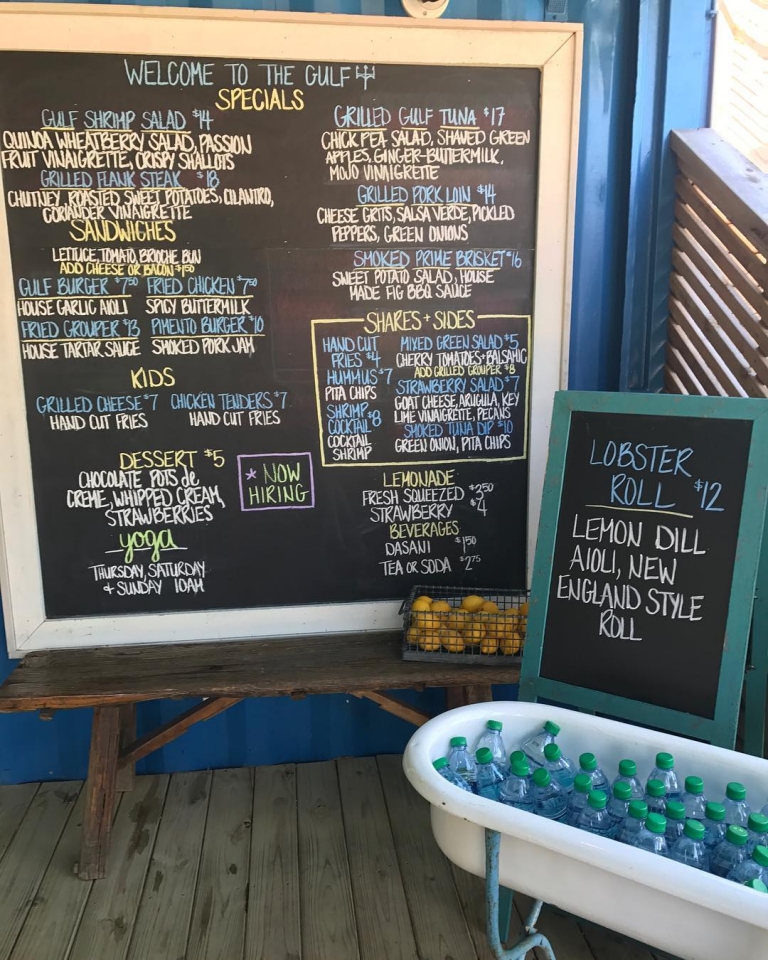 WELCOME TO THE GULF
SPECIALS
GULF SHRIMP SALAD $14
QUINOA WHEATBERRY SALAD, PASSION
FRUIT VINAIGRETTE, CRISPY SHALLOTS
GRILLED FLANK STEAK $18
CHUTNEY, ROASTED SWEET POTATOES, CILANTRO,
CORIANDER VINAIGRETTE
SANDWICHES
LETTUCE, TOMATO, BRIOCHE BUN
ADD CHEESE OR BACON $1.50
GULF BURGER $7.50 FRIED CHICKEN $7.50
HOUSE GARLIC AIOLI SPICY BUTTERMILK
FRIED GROUPER $13 PIMENTO BURGER $10
HOUSE TARTAR SAUCE SMOKED PORK JAM
KIDS
GRILLED CHEESE $7 CHICKEN TENDERS $7
HAND CUT FRIES HAND CUT FRIES
DESSERT $5
CHOCOLATE POTS de
CREME, WHIPPED CREAM,
STRAWBERRIES
yoga
THURSDAY, SATURDAY
+ SUNDAY 10AM
* NOW
HIRING
GRILLED GULF TUNA $17
CHICK PEA SALAD, SHAVED GREEN
APPLES, GINGER-BUTTERMILK,
MOJO VINAIGRETTE
GRILLED PORK LOIN $14
CHEESE GRITS, SALSA VERDE, PICKLED
PEPPERS, GREEN ONIONS
SMOKED PRIME BRISKET $16
SWEET POTATO SALAD, HOUSE
MADE FIG BBQ SAUCE
SHARES + SIDES
HAND CUT
FRIES $4
HUMMUS $7
PITA CHIPS
SHRIMP
COCKTAIL $8
COCKTAIL
SHRIMP
MIXED GREEN SALAD $5
CHERRY TOMATOES + BALSAMIC
ADD GRILLED GROUPER $8
STRAWBERRY SALAD $7
GOAT CHEESE, ARUGULA, KEY
LIME VINAIGRETTE, PECANS
SMOKED TUNA DIP $10
GREEN ONION, PITA CHIPS
LEMONADE
FRESH SQUEEZED $3.50
STRAWBERRY $4
BEVERAGES
DASANI $1.50
TEA OR SODA $2.75
LOBSTER
ROLL $12
LEMON DILL
AIOLI, NEW
ENGLAND STYLE
ROLL